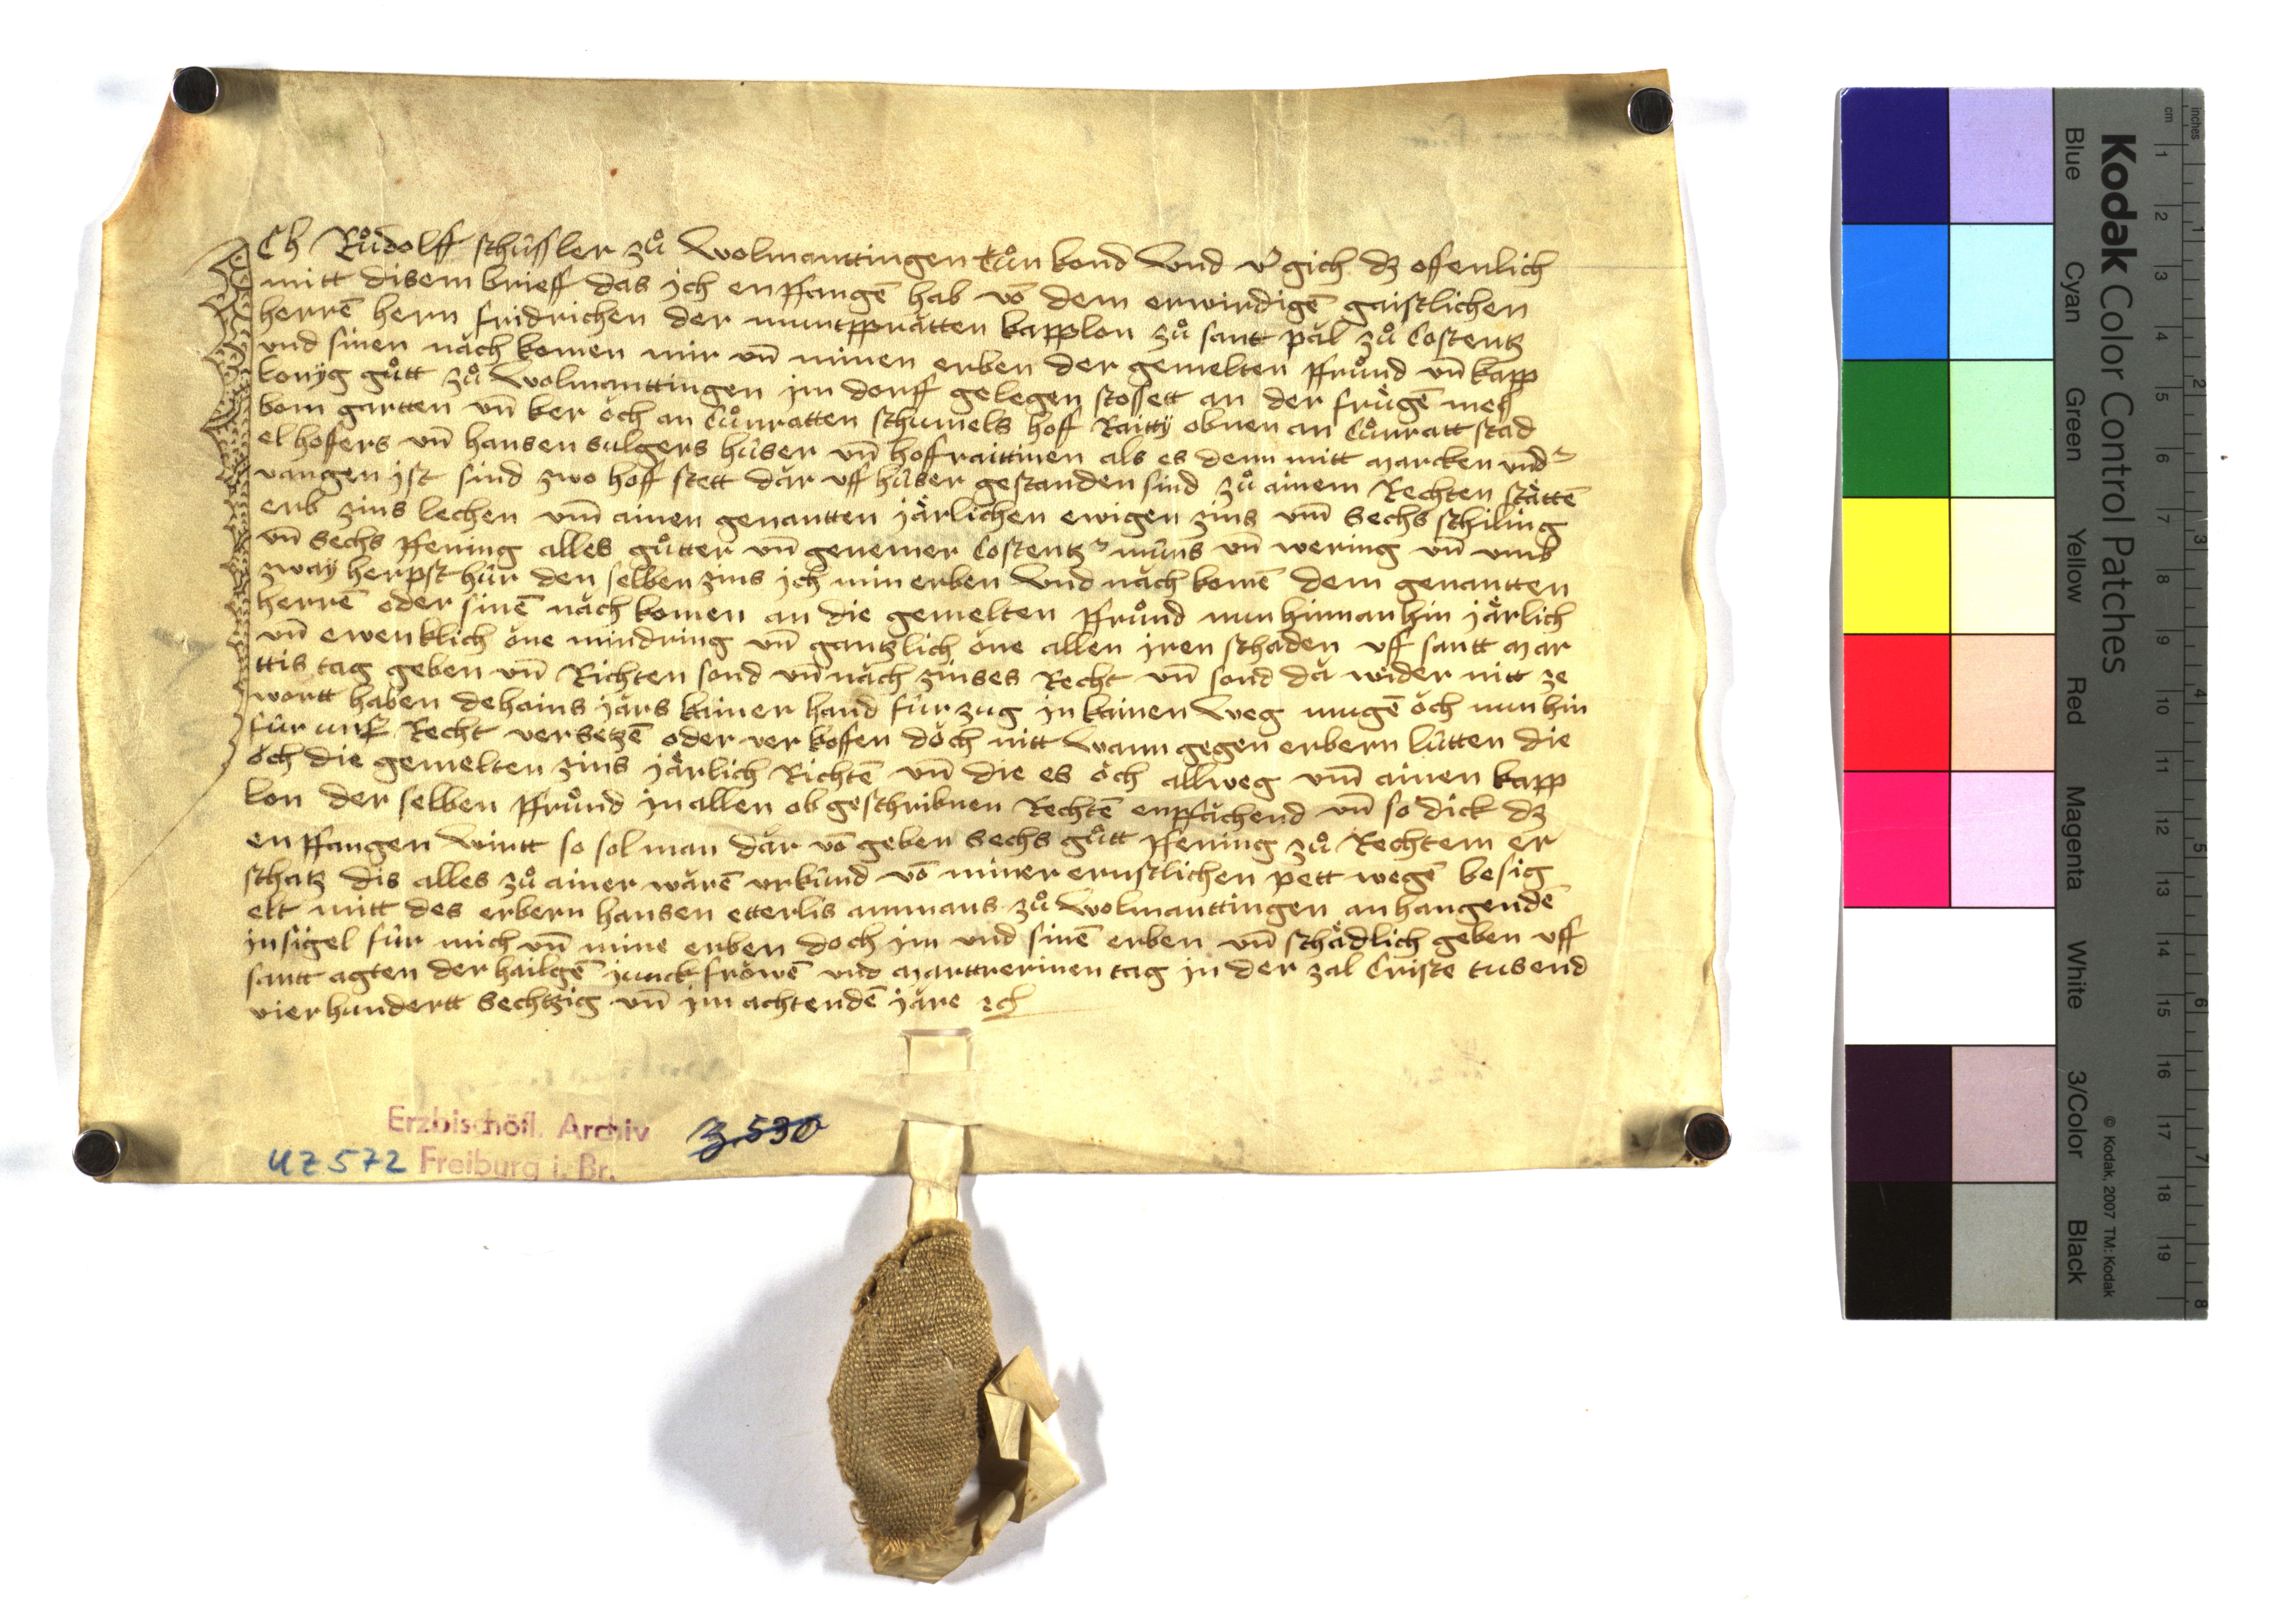 ICh Růdolff schüssler zů Wolmanttingen tůn kond Vnd v'gich dz offenlich
mitt disem brieff das ich enpfangē hab vō dem erwirdigē gaistlichen
herrē hern fridrichen der muntppratten kapplon zů sant pal zů Costentz
vnd sinen nach komen mir vn̄ minen erben der gemelten pfrůnd vn̄ kapp
lonyg gůtt zů Wolmanttingen im dorff gelegen stossett an der frügē mes
bom gartten vn̄ ker och an Cůnratten schumels hoff Raitty obnen an Cůnratt stad
el hoffers vn̄ hansen sulgers hüser vn̄ hoffraittinen als es denn mitt marcken vnd'
vangen ist sind zwo hoff stett dar vff hüser gestanden sind zů ainem Rechten stättē
erb zins lechen vm̄ ainen genantten järlichen ewigen zins vm̄ sechs schiling
vn̄ sechs pfening alles gůtter vn̄ genemer Costentz' müns vn̄ wering vn̄ vmb
zway herpst hür den selben zins ich min erben Vnd nach komē dem genantten
herrē oder sinē nach komen an die gemelten pfrůnd nun hinnanhin järlich
vn̄ ewenklich one mindring vn̄ gantzlich one allen iren schaden vff santt mar
ttis tag geben vn̄ Richten sond vn̄ nach zinses Recht vn̄ sond da wider nitt ze
wortt haben dehains jars kainer hand für zug in kainen Weg mugē och nun hin
für Recht versetzē oder ver koffen doch nitt Wann gegen erbern lütten die
och die gemelten zins järlich Richtē vn̄ die es och allweg vm̄ ainen kapp
lon der selben pfrůnd in allen ob geschribnen Rechtē enpfachend vn̄ so dick dz
enpfangen wirtt so sol man dar vō geben sechs gůtt pfening zů Rechtem er
schatz dis alles zů ainer warē vrkünd vō miner ernstlichen pett wegē besig
elt mitt des erbern hansen etterlis ammans zů Wolmanttingen anhangendē
insigel für mich vn̄ mine erben doch im vnd sinē erben vn̄ schädlich geben vff
santt agten der hailgē junckfrowē vnd marttrerinen tag in der zal Criste tusend
vierhundertt sechtzig vn̄ im achtendē jare
Erzbischöfl. Archiv
Freiburg i. Br.
UZ 572
3.530
Kodak Color Control Patches
Blue Cyan Green Yellow Red Magenta White 3/Color Black
© Kodak, 2007 TM: Kodak
inches 1 2 3 4 5 6 7 8
cm 1 2 3 4 5 6 7 8 9 10 11 12 13 14 15 16 17 18 19